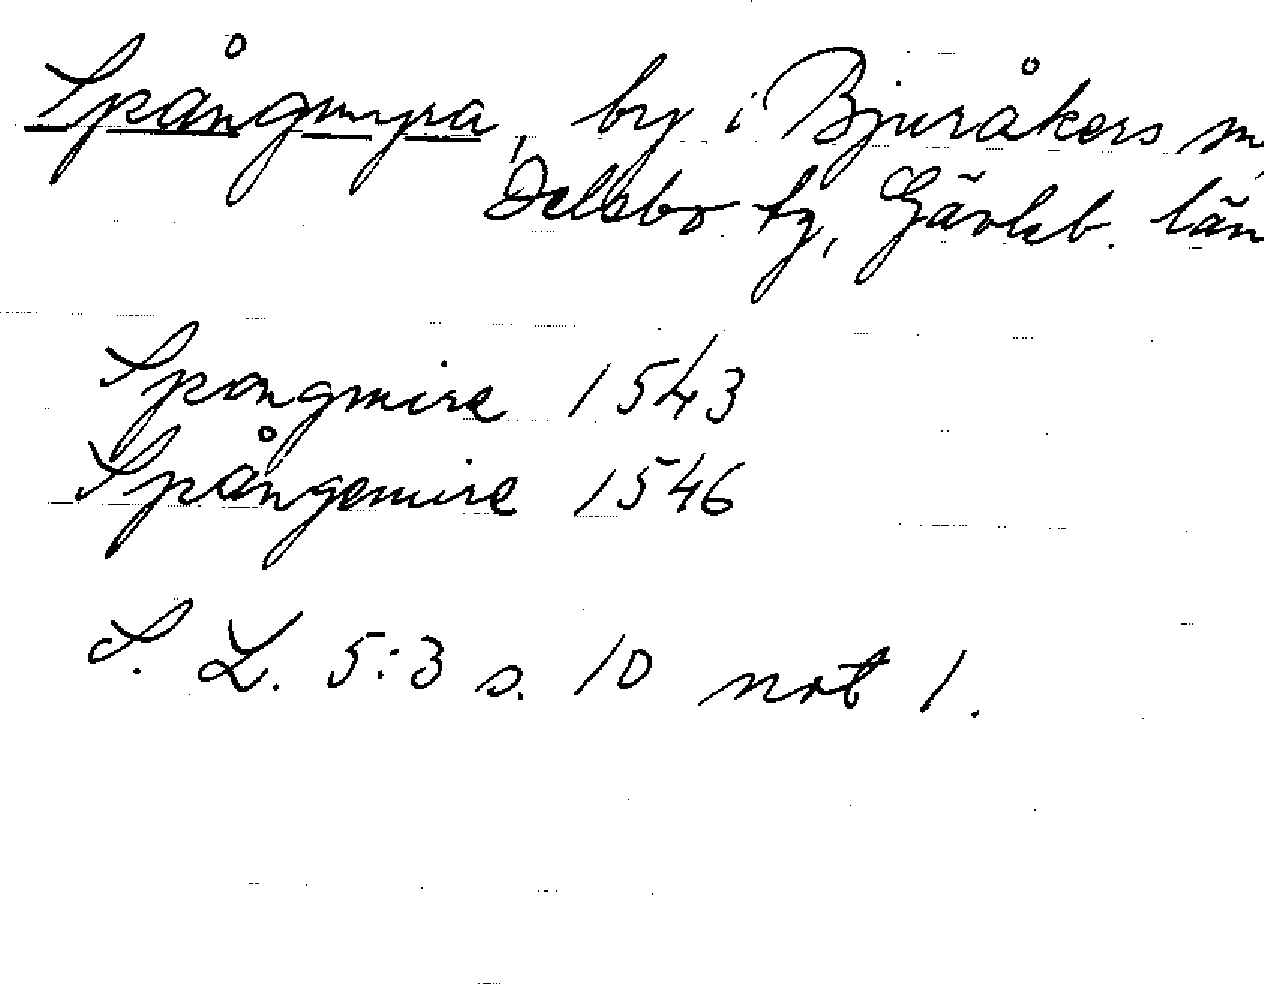 Spångmyra, by i Bjuråkers sn,
Delsbo tg, Gävleb. län
Spongmire 1543
Spångemire 1546
S. L. 5:3 s. 10 not 1.